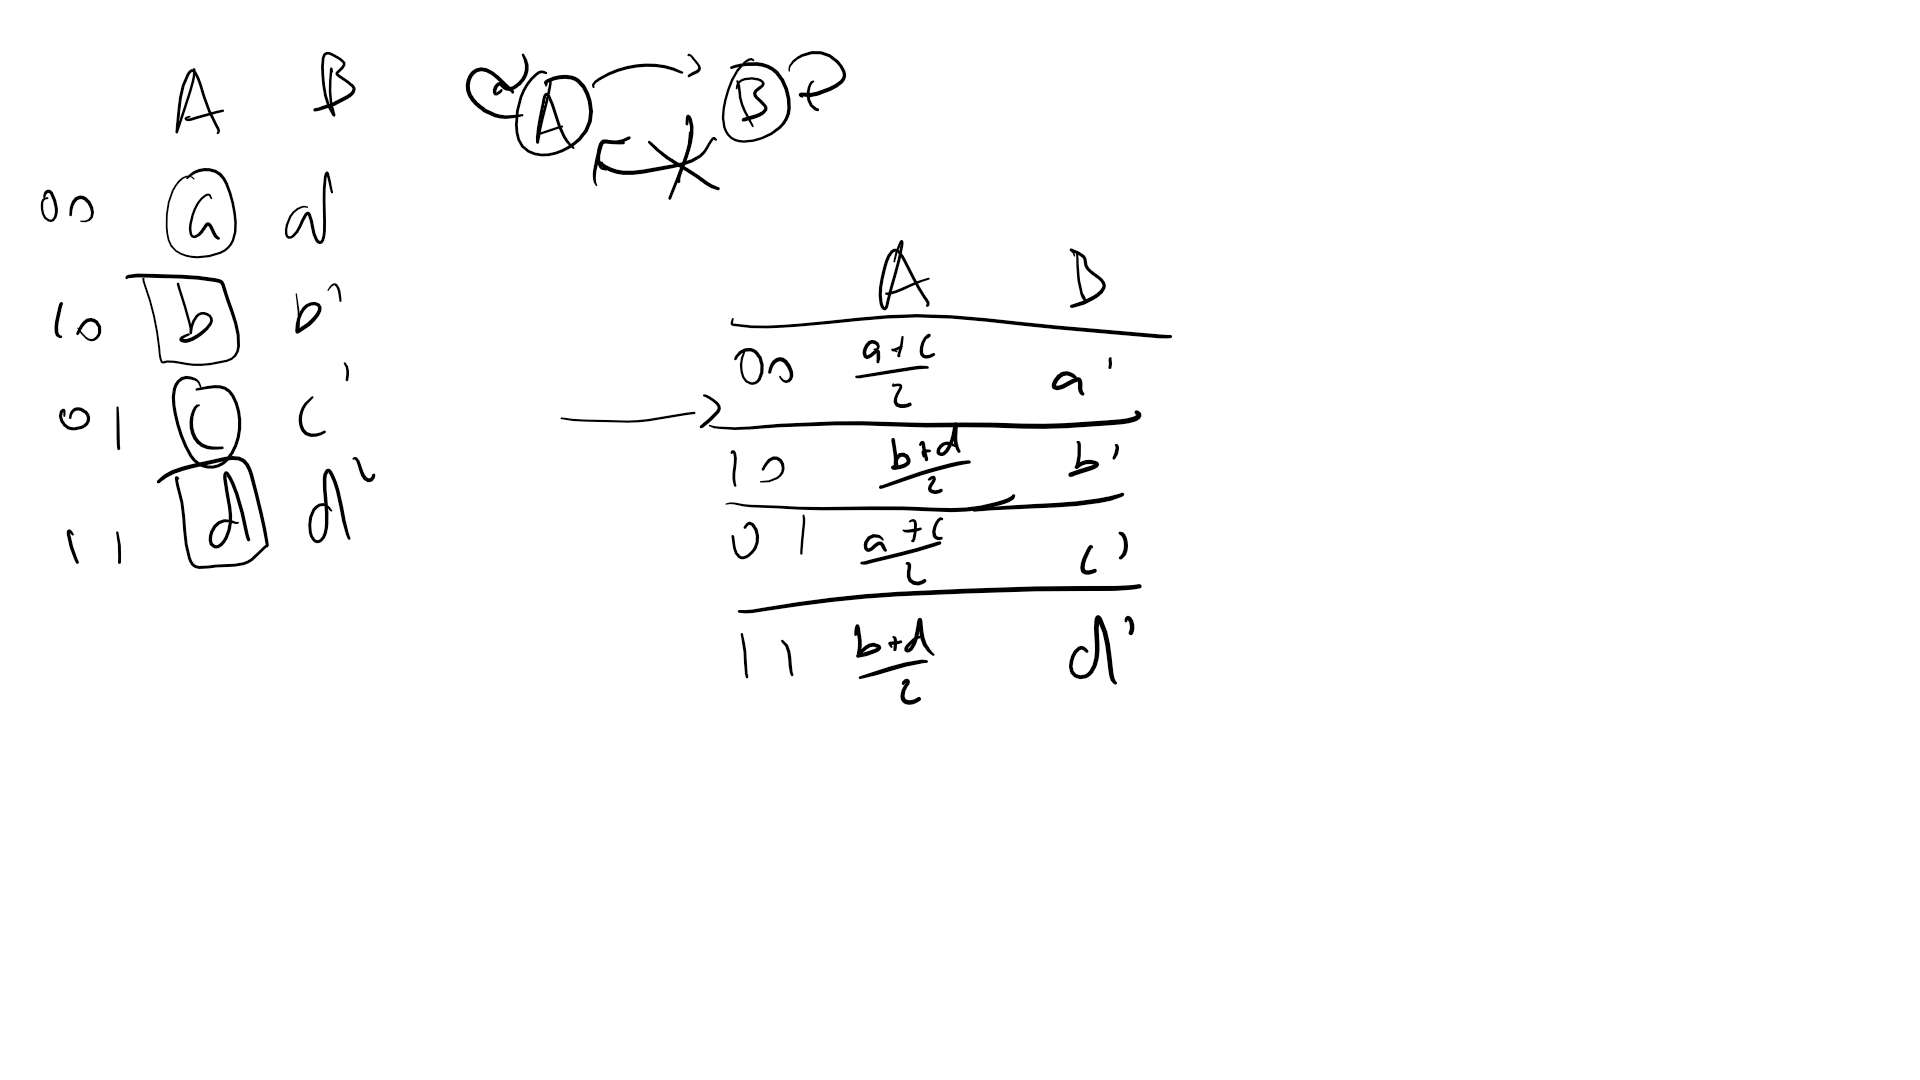 A B
A B
00 a a'
10 b b'
01 c c'
11 d d'
A B
00 a+c/2 a'
10 b+d/2 b'
01 a+c/2 c'
11 b+d/2 d'